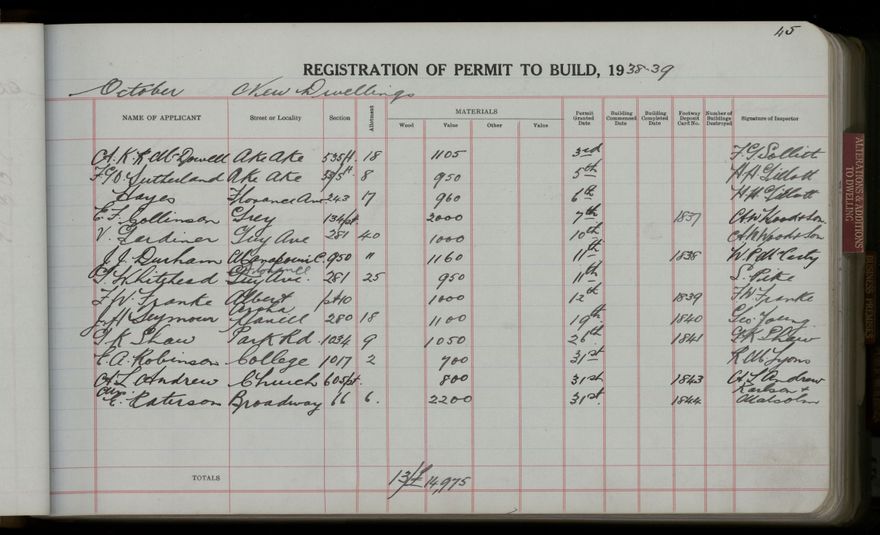 45
REGISTRATION OF PERMIT TO BUILD, 1938-39
October New Dwellings
NAME OF APPLICANT Street or Locality Section Allotment MATERIALS Wood Value Other Value Permit Granted Date Building Commenced Date Building Completed Date Footway Deposit Card No. Number of Buildings Destroyed Signature of Inspector
A. K. R. McDowell Ake Ake 535pt. 18 1105 3rd F. G. Sollitt
Sutherland Ake Ake 8 950 5th
Hayes Florence Ave 243 17 960 6th
E. F. Collinson Grey 2000 7th 1837
V. Gardiner Guy Ave 281 40 1000 10th
J. J. Durham 950 " 1160 11th 1838
G. Whitehead Guy Ave. 281 25 950 11th S. Pike
F. W. Franke Albert 1000 12th 1839 F. W. Franke
J. H. Seymour 280 18 1100 19th 1840 Geo. Young
G. K. Shaw Park Rd. 1034 9 1050 26th 1841 G. K. Shaw
E. A. Robinson College 1017 2 700 31st R. McLyons
A. L. Andrew Church 605pt. 800 31st 1843 A. L. Andrew
E. Paterson Broadway 66 6. 2200 31st 1844 Karlson + Malcolm
TOTALS 13 14,975
ALTERATIONS & ADDITIONS
TO DWELLING
BUSINESS PREMISES